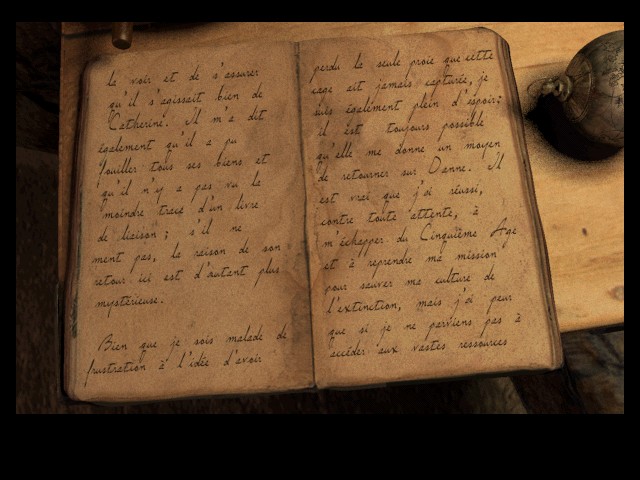 la voir et de s'assurer
qu'il s'agissait bien de
Catherine. Il m'a dit
également qu'il a pu
fouiller tous ses biens et
qu'il n'y a pas vu la
moindre trace d'un livre
de liaison ; s'il ne
ment pas, la raison de son
retour ici est d'autant plus
mystérieuse.
Bien que je sois malade de
frustration à l'idée d'avoir
perdu la seule proie que cette
cage ait jamais capturée, je
suis également plein d'espoir:
il est toujours possible
qu'elle me donne un moyen
de retourner sur D'anne. Il
est vrai que j'ai réussi,
contre toute attente, à
m'échapper du Cinquième Age
et à reprendre ma mission
pour sauver ma culture de
l'extinction, mais j'ai peur
que si je ne parviens pas à
accéder aux vastes ressources